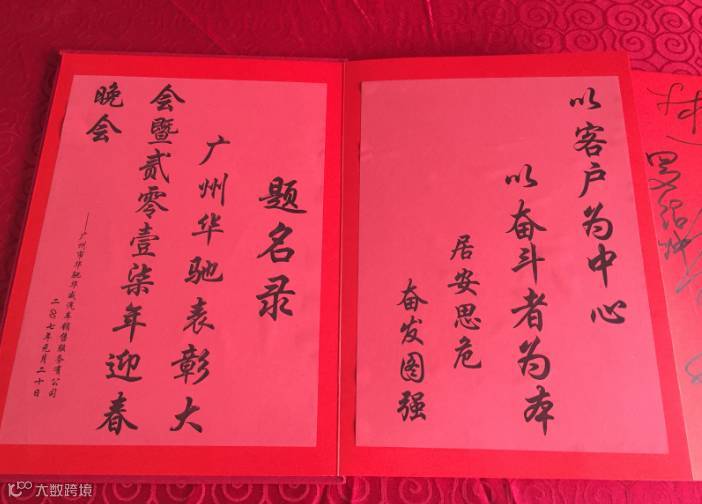 题名录
广州华驰表彰大
会暨贰零壹柒年迎春
晚会
——广州市华驰华威汽车销售服务有限公司
二〇一七年元月二十日
以客户为中心
以奋斗者为本
居安思危
奋发图强
大数跨境